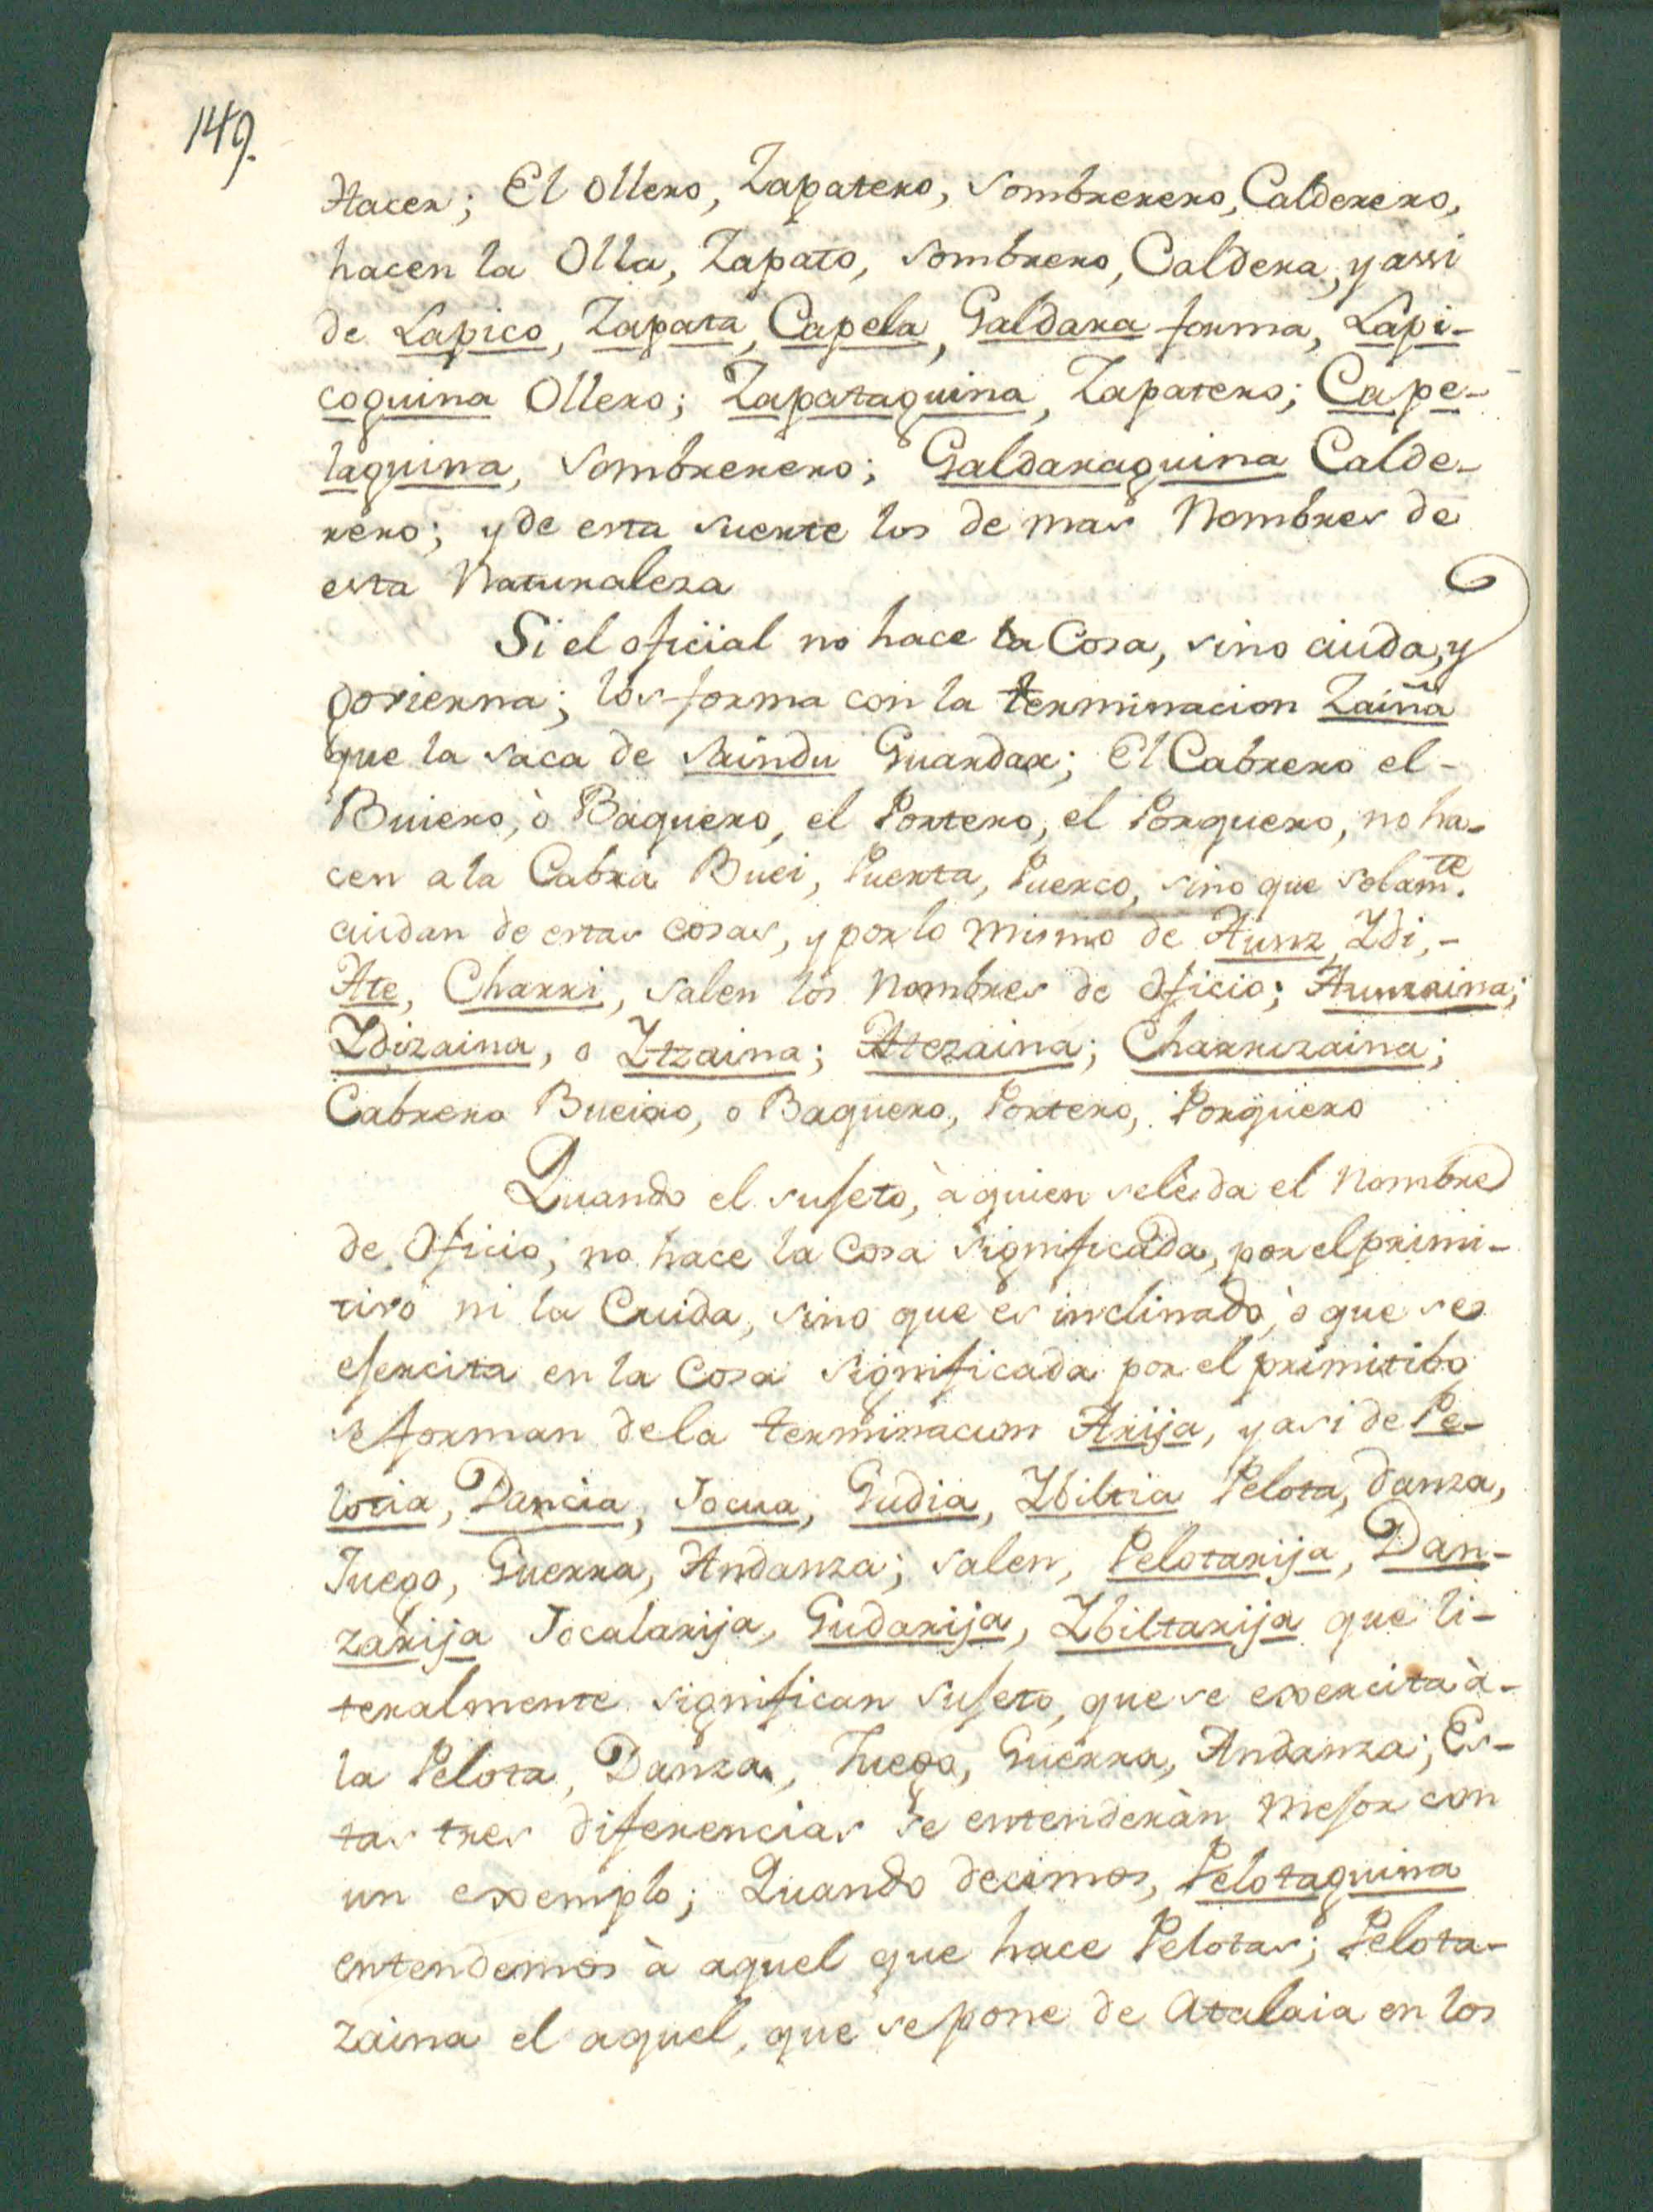 149.
Hacer; El Ollero, Zapatero, Sombrerero, Calderero,
hacen la Olla, Zapato, Sombrero, Caldera, y assi
de Lapico, Zapata, Capela, Galdara forma, Lapi-
coguina Ollero; Zapataguina, Zapatero; Cape-
laguina, Sombrerero; Galdaraguina Calde-
rero; y de esta suerte los de mas Nombres de
esta Naturaleza
Si el oficial no hace la Cosa, sino cuida, y
govierna; los forma con la terminacion Zaiña
que la saca de Saindu Guardar; El Cabrero el-
Buiero, ò Baquero, el Portero, el Porquero, no ha-
cen a la Cabra Buei, Puerta, Puerco, sino que solamte.
cuidan de estas cosas, y por lo mismo de Aunz, Idi,-
Ate, Charri, salen los Nombres de oficio; Aunzaina;
Idizaina, o Itzaina; Atezaina; Charrizaina;
Cabrero Bueiro, o Baquero, Portero, Porquero
Quando el sujeto, à quien se le da el Nombre
de Oficio, no hace la Cosa significada, por el primi-
tivo ni la Cuida, sino que es inclinado, ò que se
ejercita en la Cosa significada por el primitibo
se forman de la terminacion Arija, y asi de Pe-
lotia, Dancia, Jocua, Gudia, Ibiltia Pelota, danza,
Juego, Guerra, Andanza; salen, Pelotarija, Dan-
zarija Jocalarija, Gudarija, Ibiltarija que li-
teralmente significan sujeto, que se exercita à-
la Pelota, Danza, Juego, Guerra, Andanza; Es-
tas tres diferencias se entenderàn mejor con
un exemplo; Quando decimos, Pelotaguina
entendemos à aquel que hace Pelotas; Pelota-
zaina el aquel, que se pone de Atalaia en los